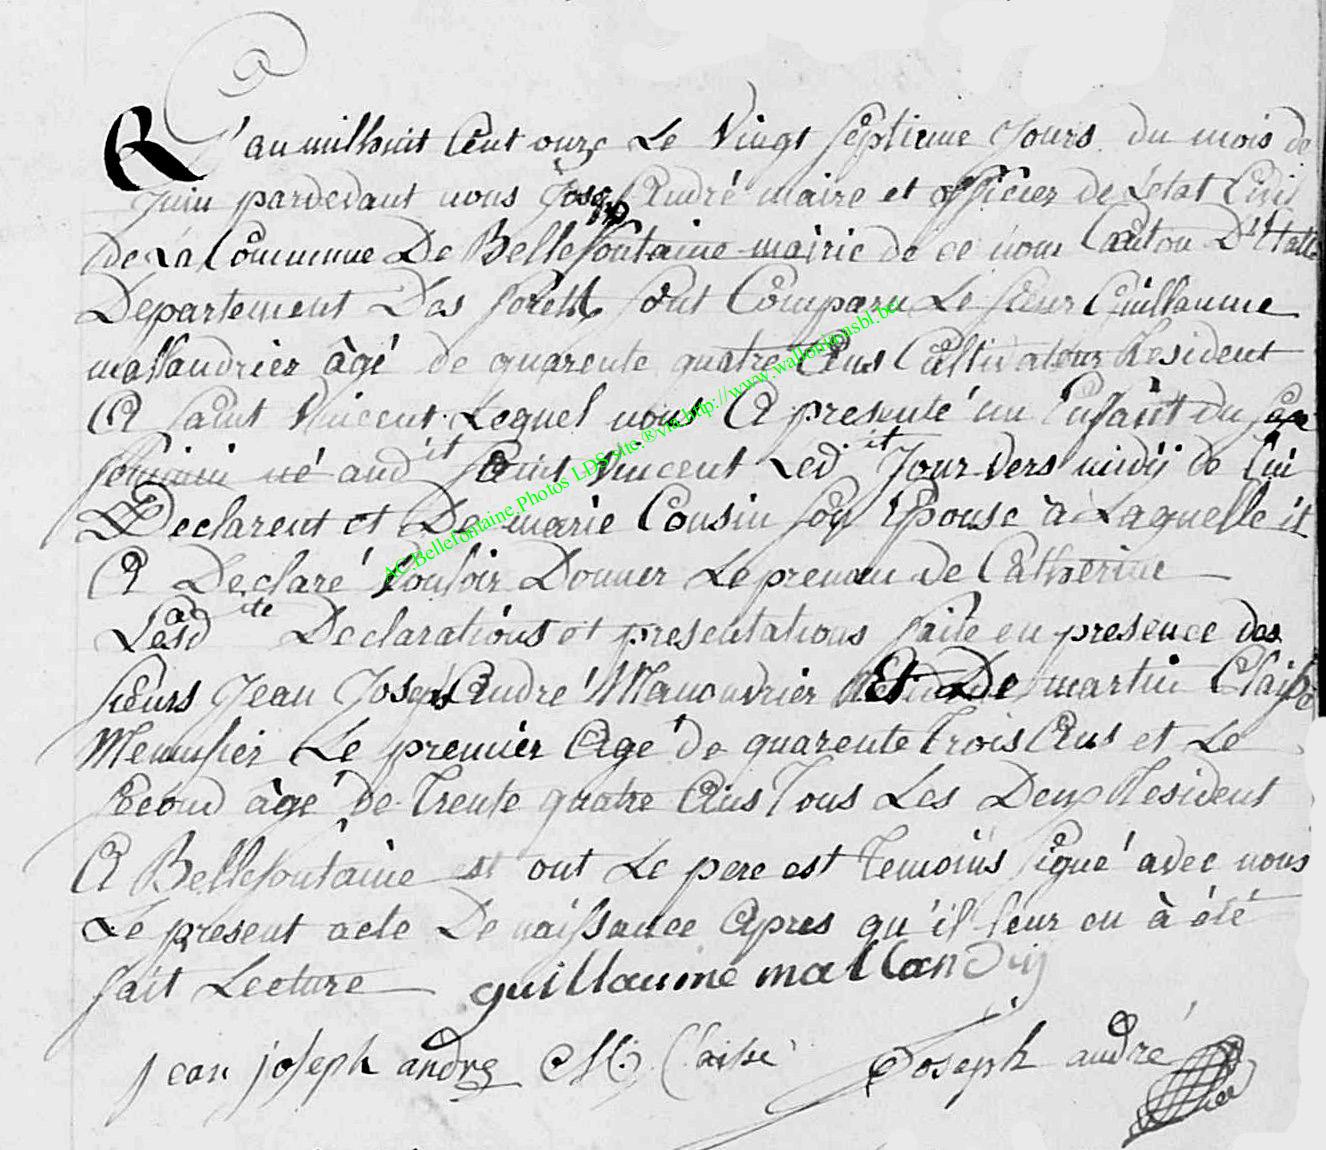 L'an mil huit Cent onze Le Vingt septieme Jours du mois de
Juin pardevant nous Joseph André maire et officier de L'état Civil
de La Commune De Bellefontaine mairie de ce nom Canton D'Etalle
Departement Des forêts sont Comparu Le sieur Guillaume
mallandrier âgé de quarente quatre Ans Cultivateur Resident
A saint Vincent Lequel nous A presenté un Enfant du sexe
feminin né aud it saint Vincent Led it Jour vers midÿ de lui
Declarent et De marie Cousin son Epouse à Laquelle il
A Declaré Vouloir Donner Le prenom de Catherine
Lesd ite Declarations et presentations faite en presence des
sieurs Jean Joseph André Manouvrier Et De martin Claisse
Menusier Le premier Agé de quarente trois Ans et Le
second âgé De Trente quatre Ans Tous Les Deux Resident
A Bellefontaine et ont Le pere est Temoins signé avec nous
Le present acte De naissance Apres qu'il leur en à été
fait Lecture guillaume mallandrij
jean joseph andre M. Claisse Joseph andré
AC.Bellefontaine.Photos LDS site.®via.http://www.wallonia-asbl.be